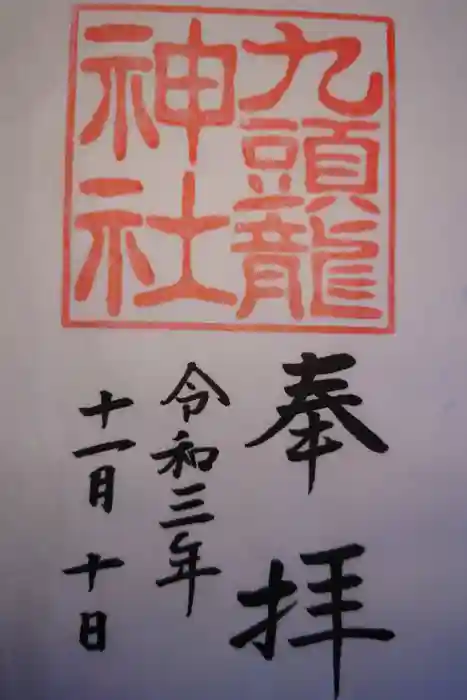 九頭龍
神社
奉拝
令和三年
十一月十日